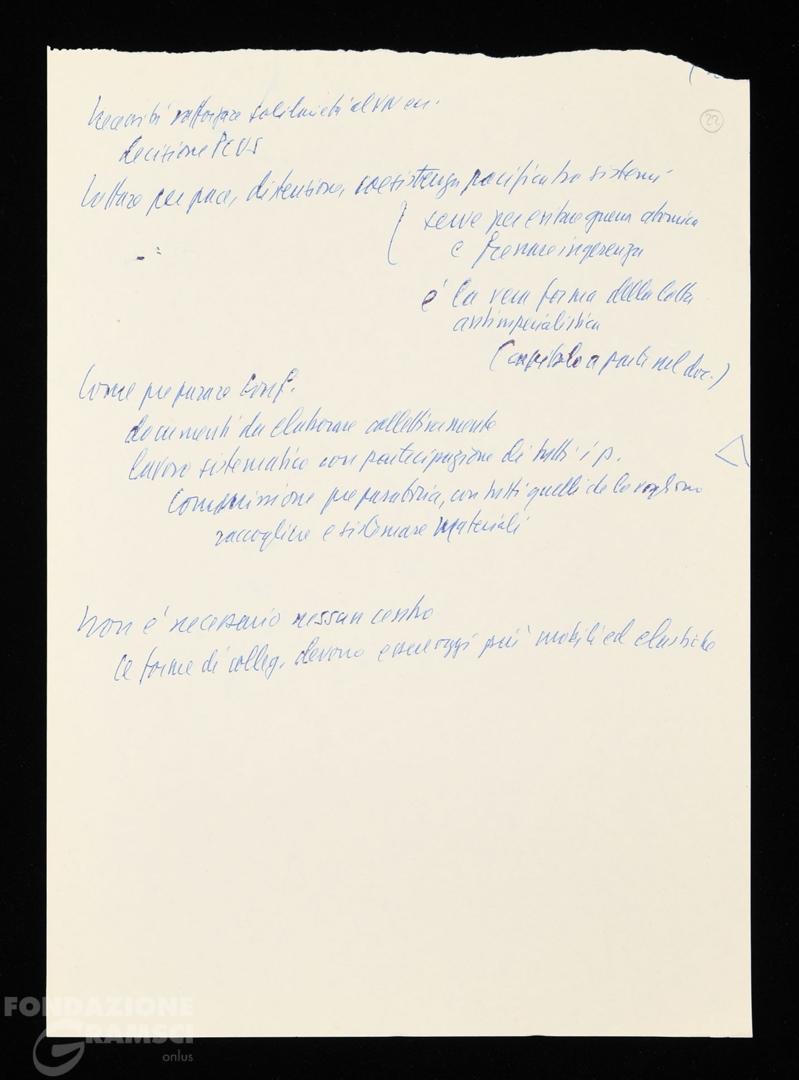 22
Necessità rafforzare solidarietà al VN ecc.
decisione PCUS
Lottare per pace, distensione, coesistenza pacifica tra sistemi
serve per evitare guerra atomica
e frenare ingerenza
è la vera forma della lotta
antimperialistica
(capitolo a parte nel doc.)
Come preparare Conf.
documenti da elaborare collettivamente
lavoro sistematico con partecipazione di tutti i p.
Commissione preparatoria, con tutti quelli che lo vogliono
raccogliere e sistemare materiali
Non è necessario nessun centro
le forme di colleg. devono essere oggi più mobili ed elastiche
FONDAZIONE
GRAMSCI
onlus